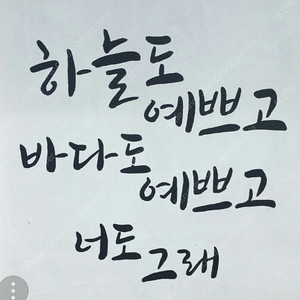 하늘도
예쁘고
바다도
예쁘고
너도
그래